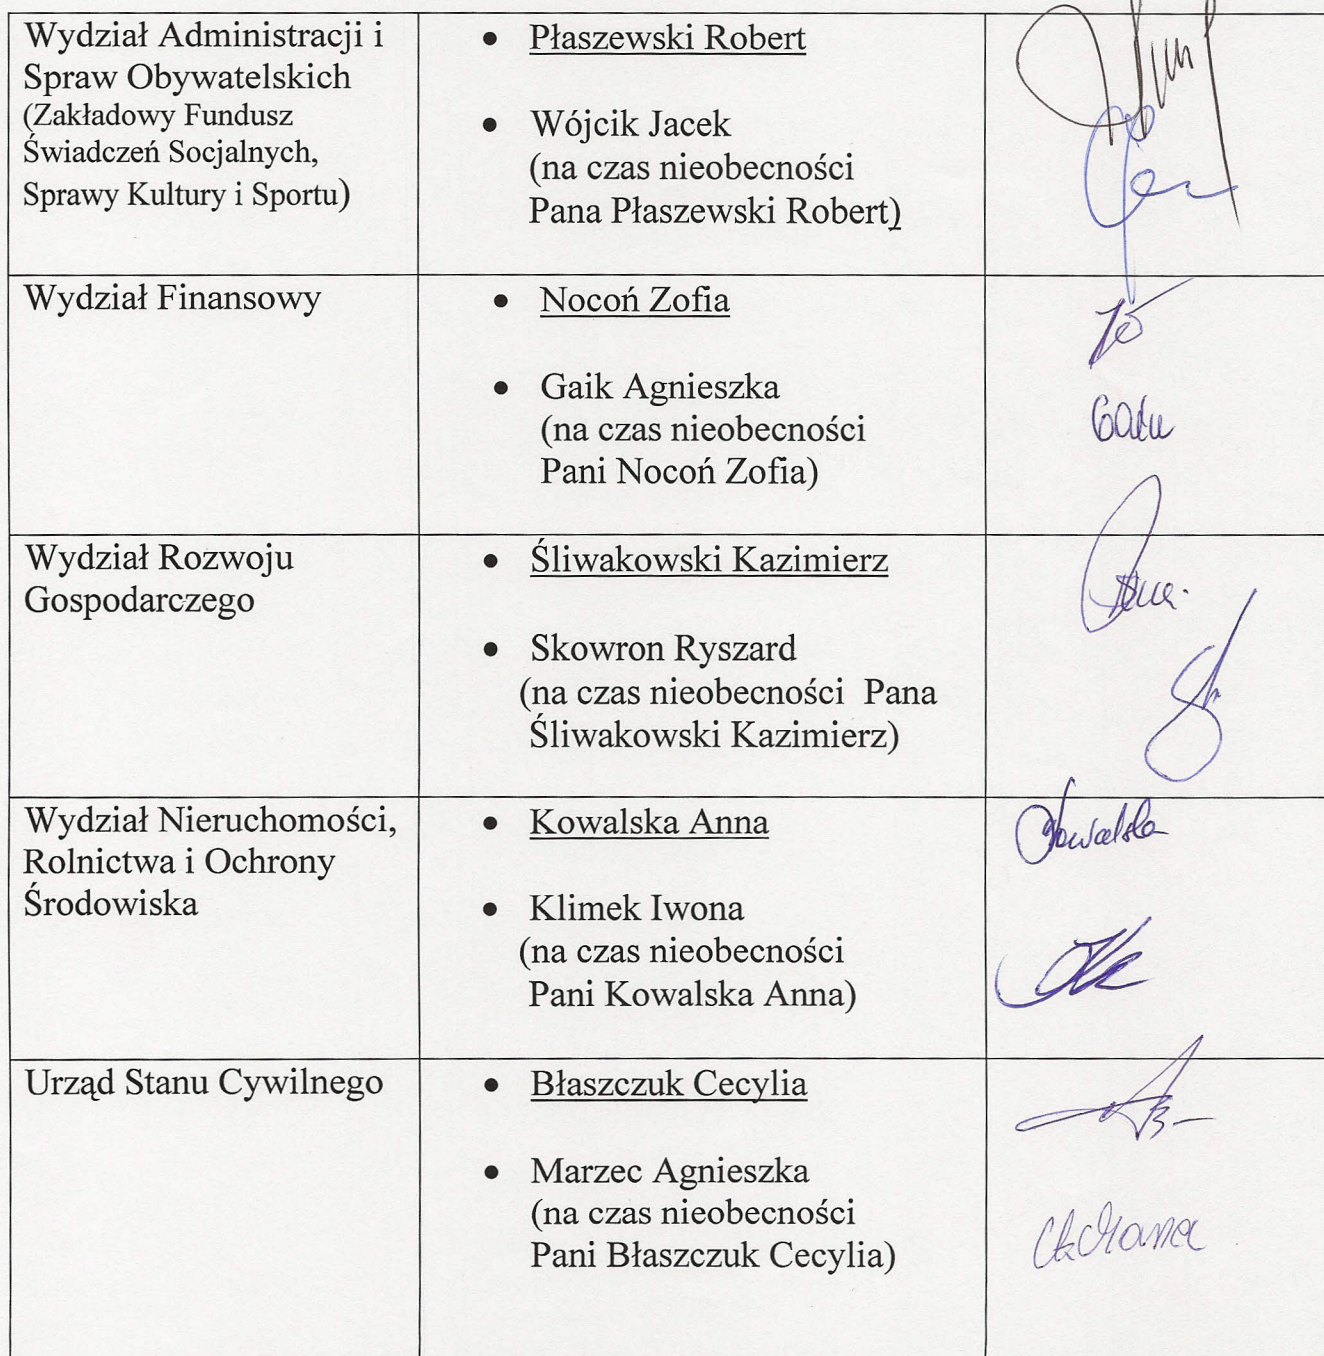 Wydział Administracji i
Spraw Obywatelskich
(Zakładowy Fundusz
Świadczeń Socjalnych,
Sprawy Kultury i Sportu)
• Płaszewski Robert
• Wójcik Jacek
(na czas nieobecności
Pana Płaszewski Robert)
Wydział Finansowy
• Nocoń Zofia
• Gaik Agnieszka
(na czas nieobecności
Pani Nocoń Zofia)
Wydział Rozwoju
Gospodarczego
• Śliwakowski Kazimierz
• Skowron Ryszard
(na czas nieobecności Pana
Śliwakowski Kazimierz)
Wydział Nieruchomości,
Rolnictwa i Ochrony
Środowiska
• Kowalska Anna
• Klimek Iwona
(na czas nieobecności
Pani Kowalska Anna)
Kowalska
Urząd Stanu Cywilnego
• Błaszczuk Cecylia
• Marzec Agnieszka
(na czas nieobecności
Pani Błaszczuk Cecylia)